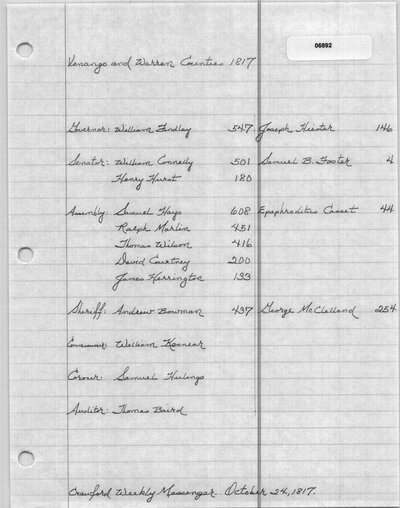 06892
Venango and Warren Counties 1817
Governor: William Findlay 547. Joseph Hiester 146
Senator: William Connelly 501 Samuel B. Foster 4
Henry Hurst 180
Assembly: Samuel Hays 608 Epaphroditus Cosset 44
Ralph Marlin 451
Thomas Wilson 416
David Courtney 200
James Herrington 133
Sheriff: Andrew Bowman 437 George McClelland 254
William Kinnear
Coroner: Samuel Hulings
Auditor: Thomas Baird
Crawford Weekly Messenger. October 24, 1817.